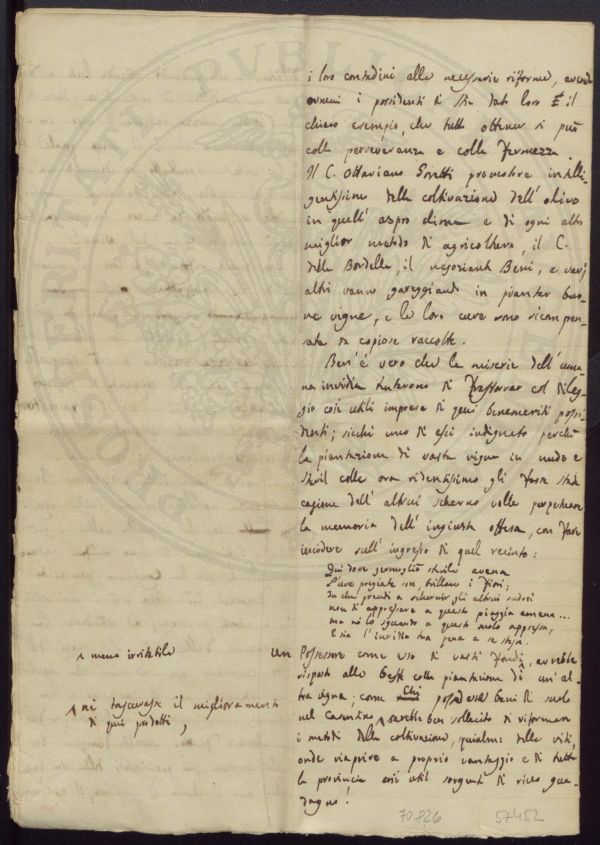 i loro contadini alle necessarie riforme, avendo
ormai i possidenti di Stia dato loro il
chiaro esempio, che tutto ottener si può
colla perseveranza e colla fermezza.
Il C. Ottaviano Goretti promotore intelli-
gentissimo della coltivazione dell' olivo
in quell' aspro clima e di ogni altro
miglior metodo di agricoltura, il C.
della Bordella, il negoziante Beni, e varj
altri vanno gareggiando in piantar buo-
ne vigne, e le loro cure sono ricompen-
sate da copiose raccolte.
Ben' è vero che le miserie dell' uma-
na invidia tentarono di frastornar col dileg-
gio così utili imprese di quei benemeriti possi-
denti; sicchè uno di essi indignato perchè
la piantazione di vasta vigna in nudo e
steril colle ora ridentissimo gli fosse stata
cagione dell' altrui scherno volle perpetuare
la memoria dell' ingiusta offesa, con fare
incidere sull' ingresso di quel recinto:
Qui dove germogliò sterile avena
L'uve pregiate or, brillano i fiori;
Tu che prendi a schernir gli altrui sudori
non di appressare a questa piaggia amena...
ma se lo sguardo a questo suolo appressa,
E sia l'invidia tua pena a se stessa.
^ meno irritabile
un Possessore come esso di vasti fondi, avrebbe
risposto alle beffe colla piantazione di un' al-
tra vigna; come Chi possedesse beni di suolo
^ nè trascurasse il miglioramento
di quei prodotti,
nel Casentino ^ sarebbe ben sollecito di riformare
i metodi della coltivazione, qualmente delle viti,
onde riaprire a proprio vantaggio e di tutta
la provincia così util sorgente di ricco gua-
dagno!
70.826 57452